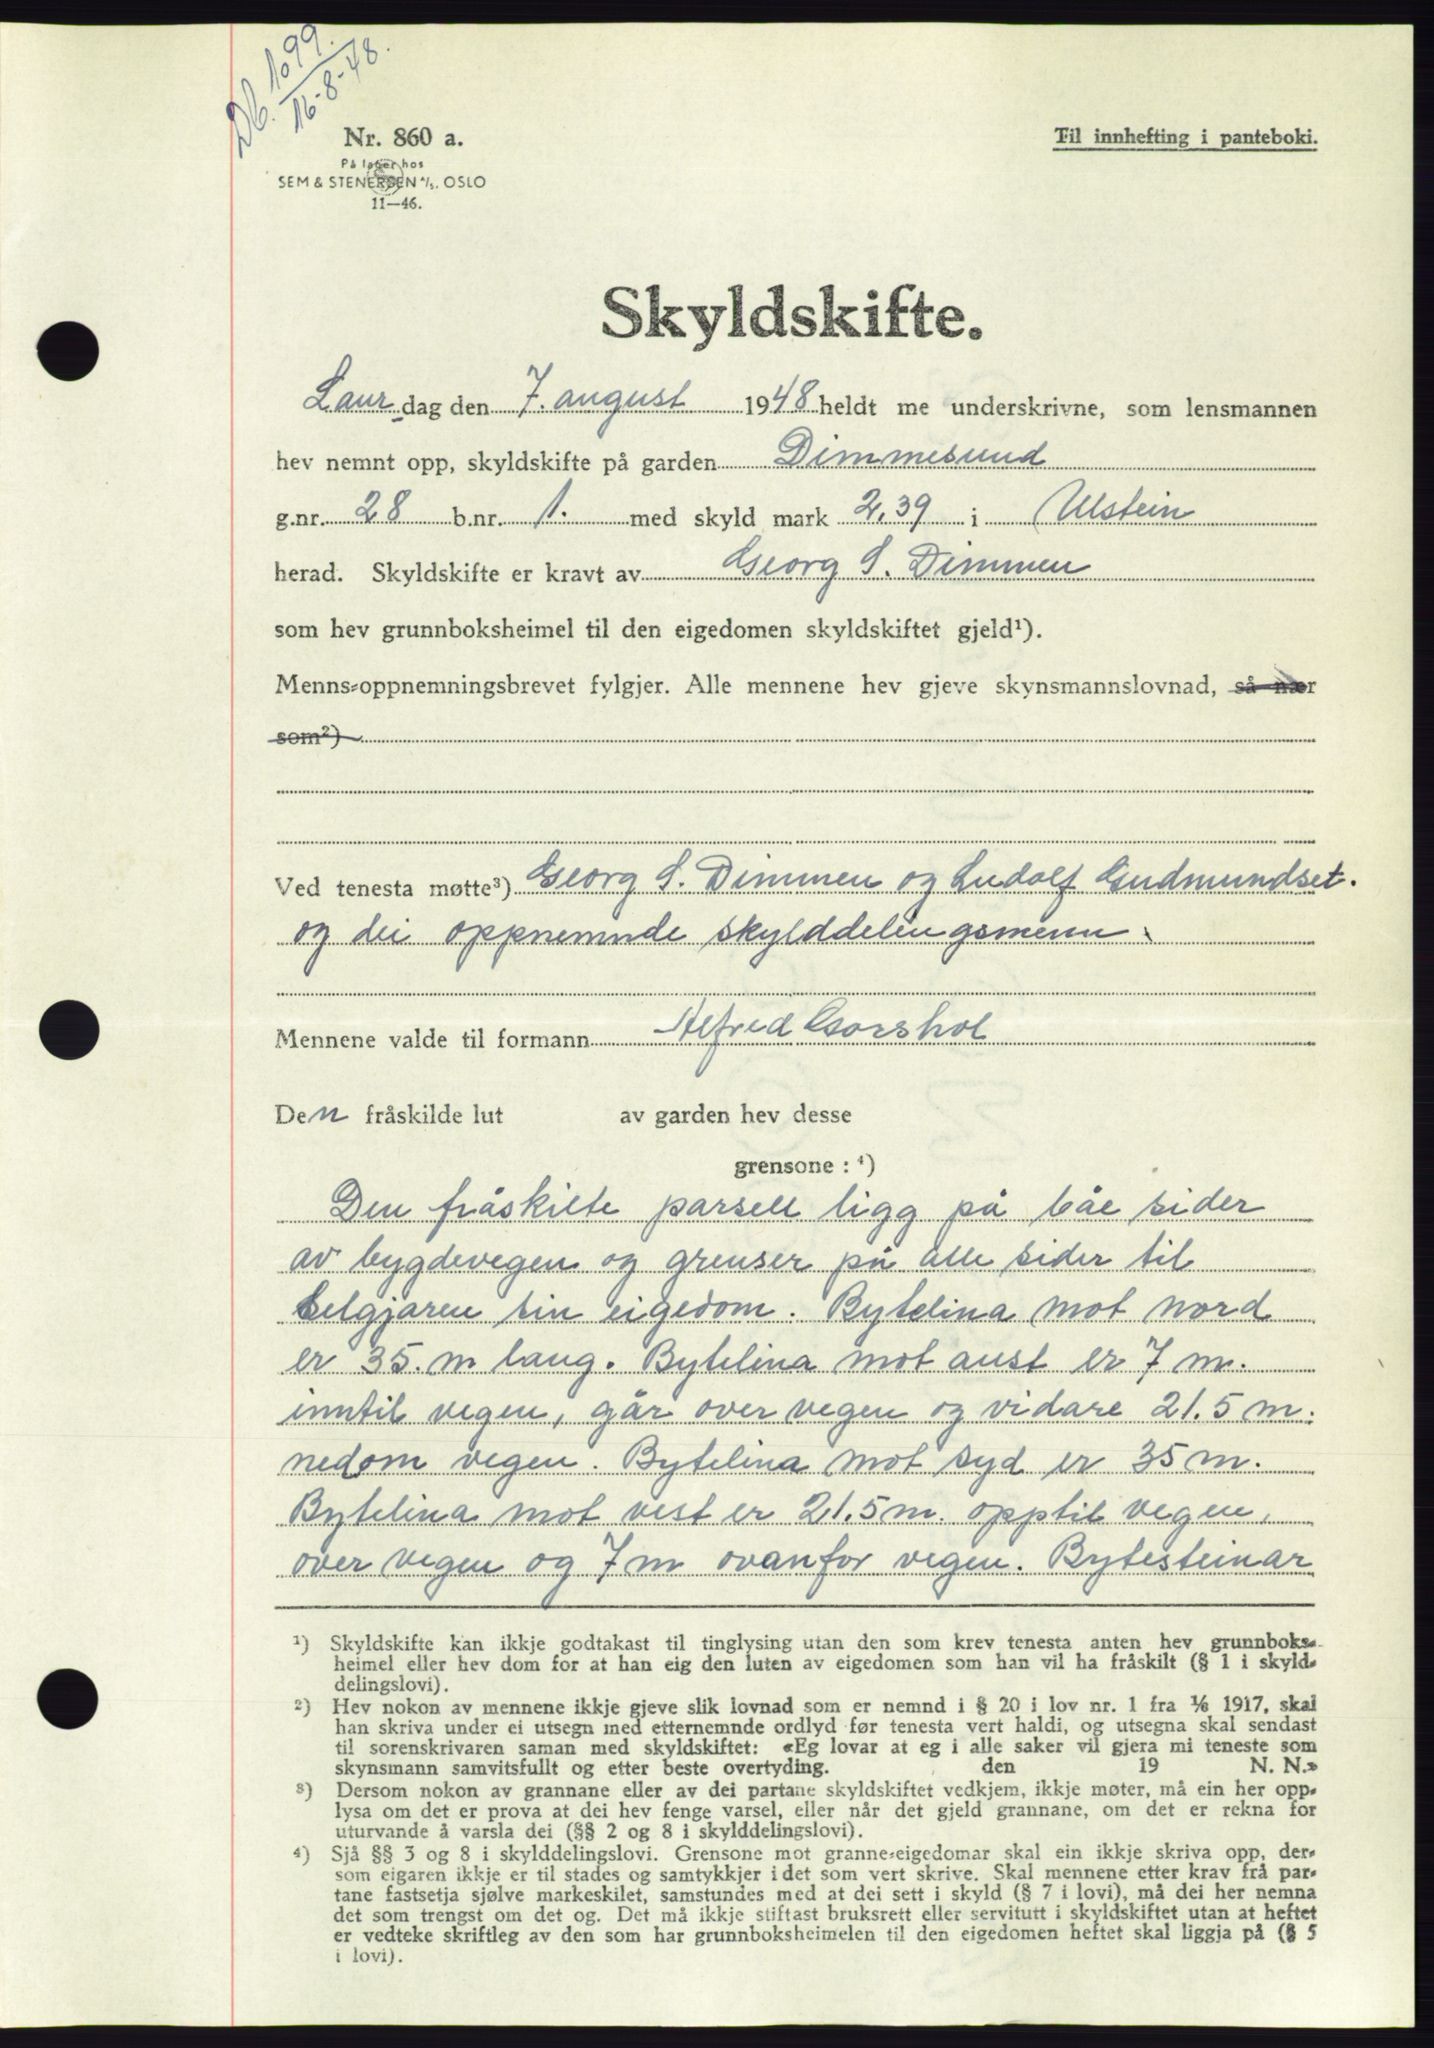 Db. 1099
16-8-48.
Nr. 860 a.
Til innhefting i panteboki.
På lager hos
SEM & STENERSEN A/S. OSLO
11—46.
Skyldskifte.
Laurdag den 7. august 1948 heldt me underskrivne, som lensmannen
hev nemnt opp, skyldskifte på garden Dimmesund
g.nr. 28 b.nr. 1. med skyld mark 2,39 i Ulstein
herad. Skyldskifte er kravt av Georg S. Dimmen
som hev grunnboksheimel til den eigedomen skyldskiftet gjeld¹).
Menns-oppnemningsbrevet fylgjer. Alle mennene hev gjeve skynsmannslovnad, så nær
som²)
Ved tenesta møtte³) Georg S. Dimmen og Ludolf Gudmundset.
og dei oppnemnde skylddelingsmenn.
Mennene valde til formann Alfred Garshol
Den fråskilde lut av garden hev desse
grensone : ⁴)
Den fråskilte parsell ligg på båe sider
av bygdevegen og grenser på alle sider til
selgjaren sin eigedom. Bytelina mot nord
er 35. m lang. Bytelina mot aust er 7 m.
inntil vegen, går over vegen og vidare 21.5 m.
nedom vegen. Bytelina mot syd er 35 m.
Bytelina mot vest er 21.5 m. opptil vegen,
over vegen og 7 m ovanfor vegen. Bytesteinar
¹) Skyldskifte kan ikkje godtakast til tinglysing utan den som krev tenesta anten hev grunnboks-
heimel eller hev dom for at han eig den luten av eigedomen som han vil ha fråskilt (§ 1 i skyld-
delingslovi).
²) Hev nokon av mennene ikkje gjeve slik lovnad som er nemnd i § 20 i lov nr. 1 fra 1/6 1917, skal
han skriva under ei utsegn med etternemnde ordlyd før tenesta vert haldi, og utsegna skal sendast
til sorenskrivaren saman med skyldskiftet: «Eg lovar at eg i alle saker vil gjera mi teneste som
skynsmann samvitsfullt og etter beste overtyding. den 19 N. N.»
³) Dersom nokon av grannane eller av dei partane skyldskiftet vedkjem, ikkje møter, må ein her opp-
lysa om det er prova at dei hev fenge varsel, eller når det gjeld grannane, om det er rekna for
uturvande å varsla dei (§§ 2 og 8 i skylddelingslovi).
⁴) Sjå §§ 3 og 8 i skylddelingslovi. Grensone mot granne-eigedomar skal ein ikkje skriva opp, der-
som eigaren ikkje er til stades og samtykkjer i det som vert skrive. Skal mennene etter krav frå par-
tane fastsetja sjølve markeskilet, samstundes med at dei sett i skyld (§ 7 i lovi), må dei her nemna
det som trengst om det og. Det må ikkje stiftast bruksrett eller servitutt i skyldskiftet utan at heftet
er vedteke skriftleg av den som har grunnboksheimelen til den eigedomen heftet skal liggja på (§ 5
i lovi).